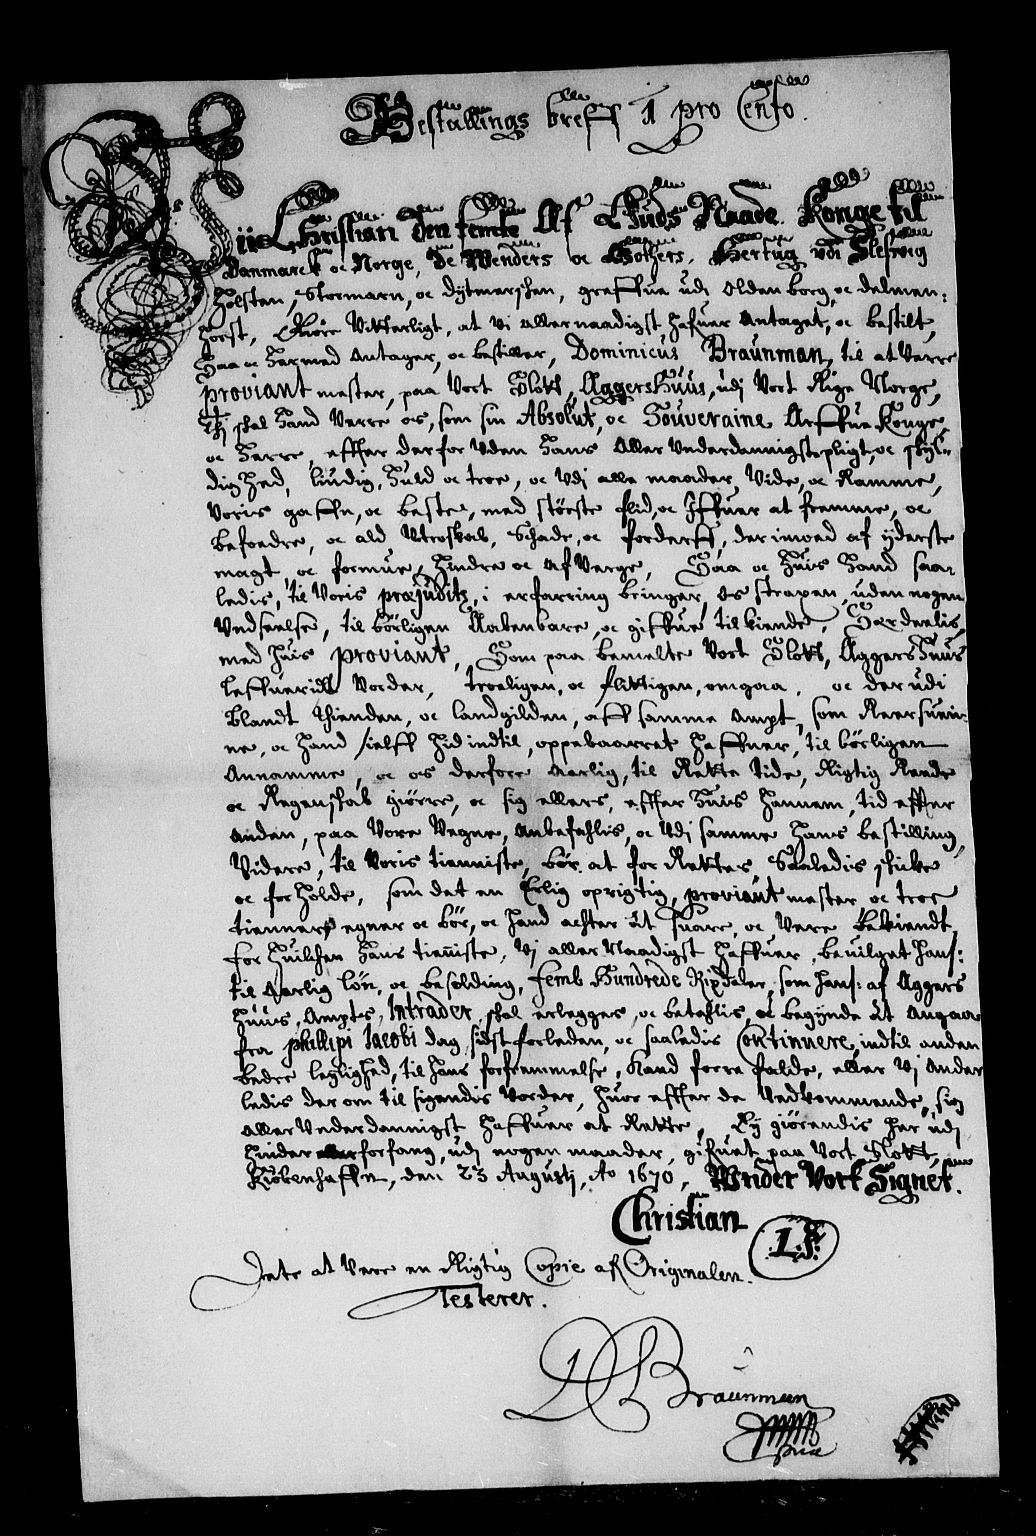 Bestallings breff 1 pro Cento.
Wii Christian den femte Af Guds Naade Konge til
Danmarck oc Norge, de Wenders oc Gothers, Hertug udi Slesvig
Holsten, Stormarn, oc Dytmerschen, greffue udi Oldenborg oc Delmen:
horst, Giøre Vitterligt, at Vi allernaadigst hafuer Antaget, oc bestilt,
Saa oc hermed Antager, oc bestiller, Dominicus Braunman, til at Verre
proviant mester, paa Vort Slott, AggersHuus, udi Vort Rige Norge,
Thj skal Hand Verre os, som sin Absolut, oc Souveraine Arffue Konge,
oc Herre, effter derfor Uden Hans Aller Underdannigste pligt, oc skyl=
dighed, lündig, Huld oc troe, oc Udj alle maader, Vide, oc Ramme,
Voris gaffn, oc beste, med største flid, oc Iffuer at fremme, oc
befordre, oc ald Utroskab, Schade, oc forderff, derimod af yderste
magt, oc formue, hindre oc AfVerge, Saa oc Huis Hand saa=
ledis, til Voris præjuditz, i erfarring bringer, Os strapen, uden nogen
Undseelse, til børligen Aabenbare, oc giffue tilkiende, Særdeelis,
med huis proviant, Som paa bemelte Vort Slott, AggersHuus
leffueridt Vorder, troeligen, oc flittigen, omgaa, oc der udi
blandt thienden, oc landgilden, aff samme Ampt, som Reersuein=
ne, oc Hand sielff hid indtil, oppebaarret haffuer, til børligen
Annamme, oc os derfore Aarlig, til Rette tide, Rigtig Reede
oc Regenskab giørre, oc sig ellers, effter Huis hannem, tid effter
anden, paa Vore Vegne, Anbefahlis, oc Udj samme hans bestilling,
Videre, til Voris tienniste, bør at for Rettes, Saaledis skicke
oc forholde, som det en Erlig oprigtig, proviant mester, oc troe
tienner egner oc bør, oc Hand achter at suare, oc Vere bekiendt,
for Huilchen Hans tienniste, Vj aller Naadigst haffuer, beuilget Hans:
til Aarlig løn, oc besolding, femb Hundrede Rixdaler, som Hans: af Aggers
Huus, Ampts, Intrader, skal erlegges, oc betahlis, oc begynde at Angaa
fra phillipi Jacobi dag sidst forleden, oc saaledis Continuere, indtil anden
bedre leylighed, til Hans forfremmelse, kand forre falde, eller Vj Ander
ledis der om til sigendis Vorder, huor effter de Vedkommende, sig
Aller Underdannigst haffuer at Rette, Ey giørendis her udj
hinder eller forfang, udj nogen maader, gifuet paa Vort Slott,
Kiøbenhaffn, den 23 Augustj, Ao 1670, Under Vort Signet.
Christian
L: S:
Dete at Vere en Rigtig Copie af Originalen.
Testerer.
D Braünman